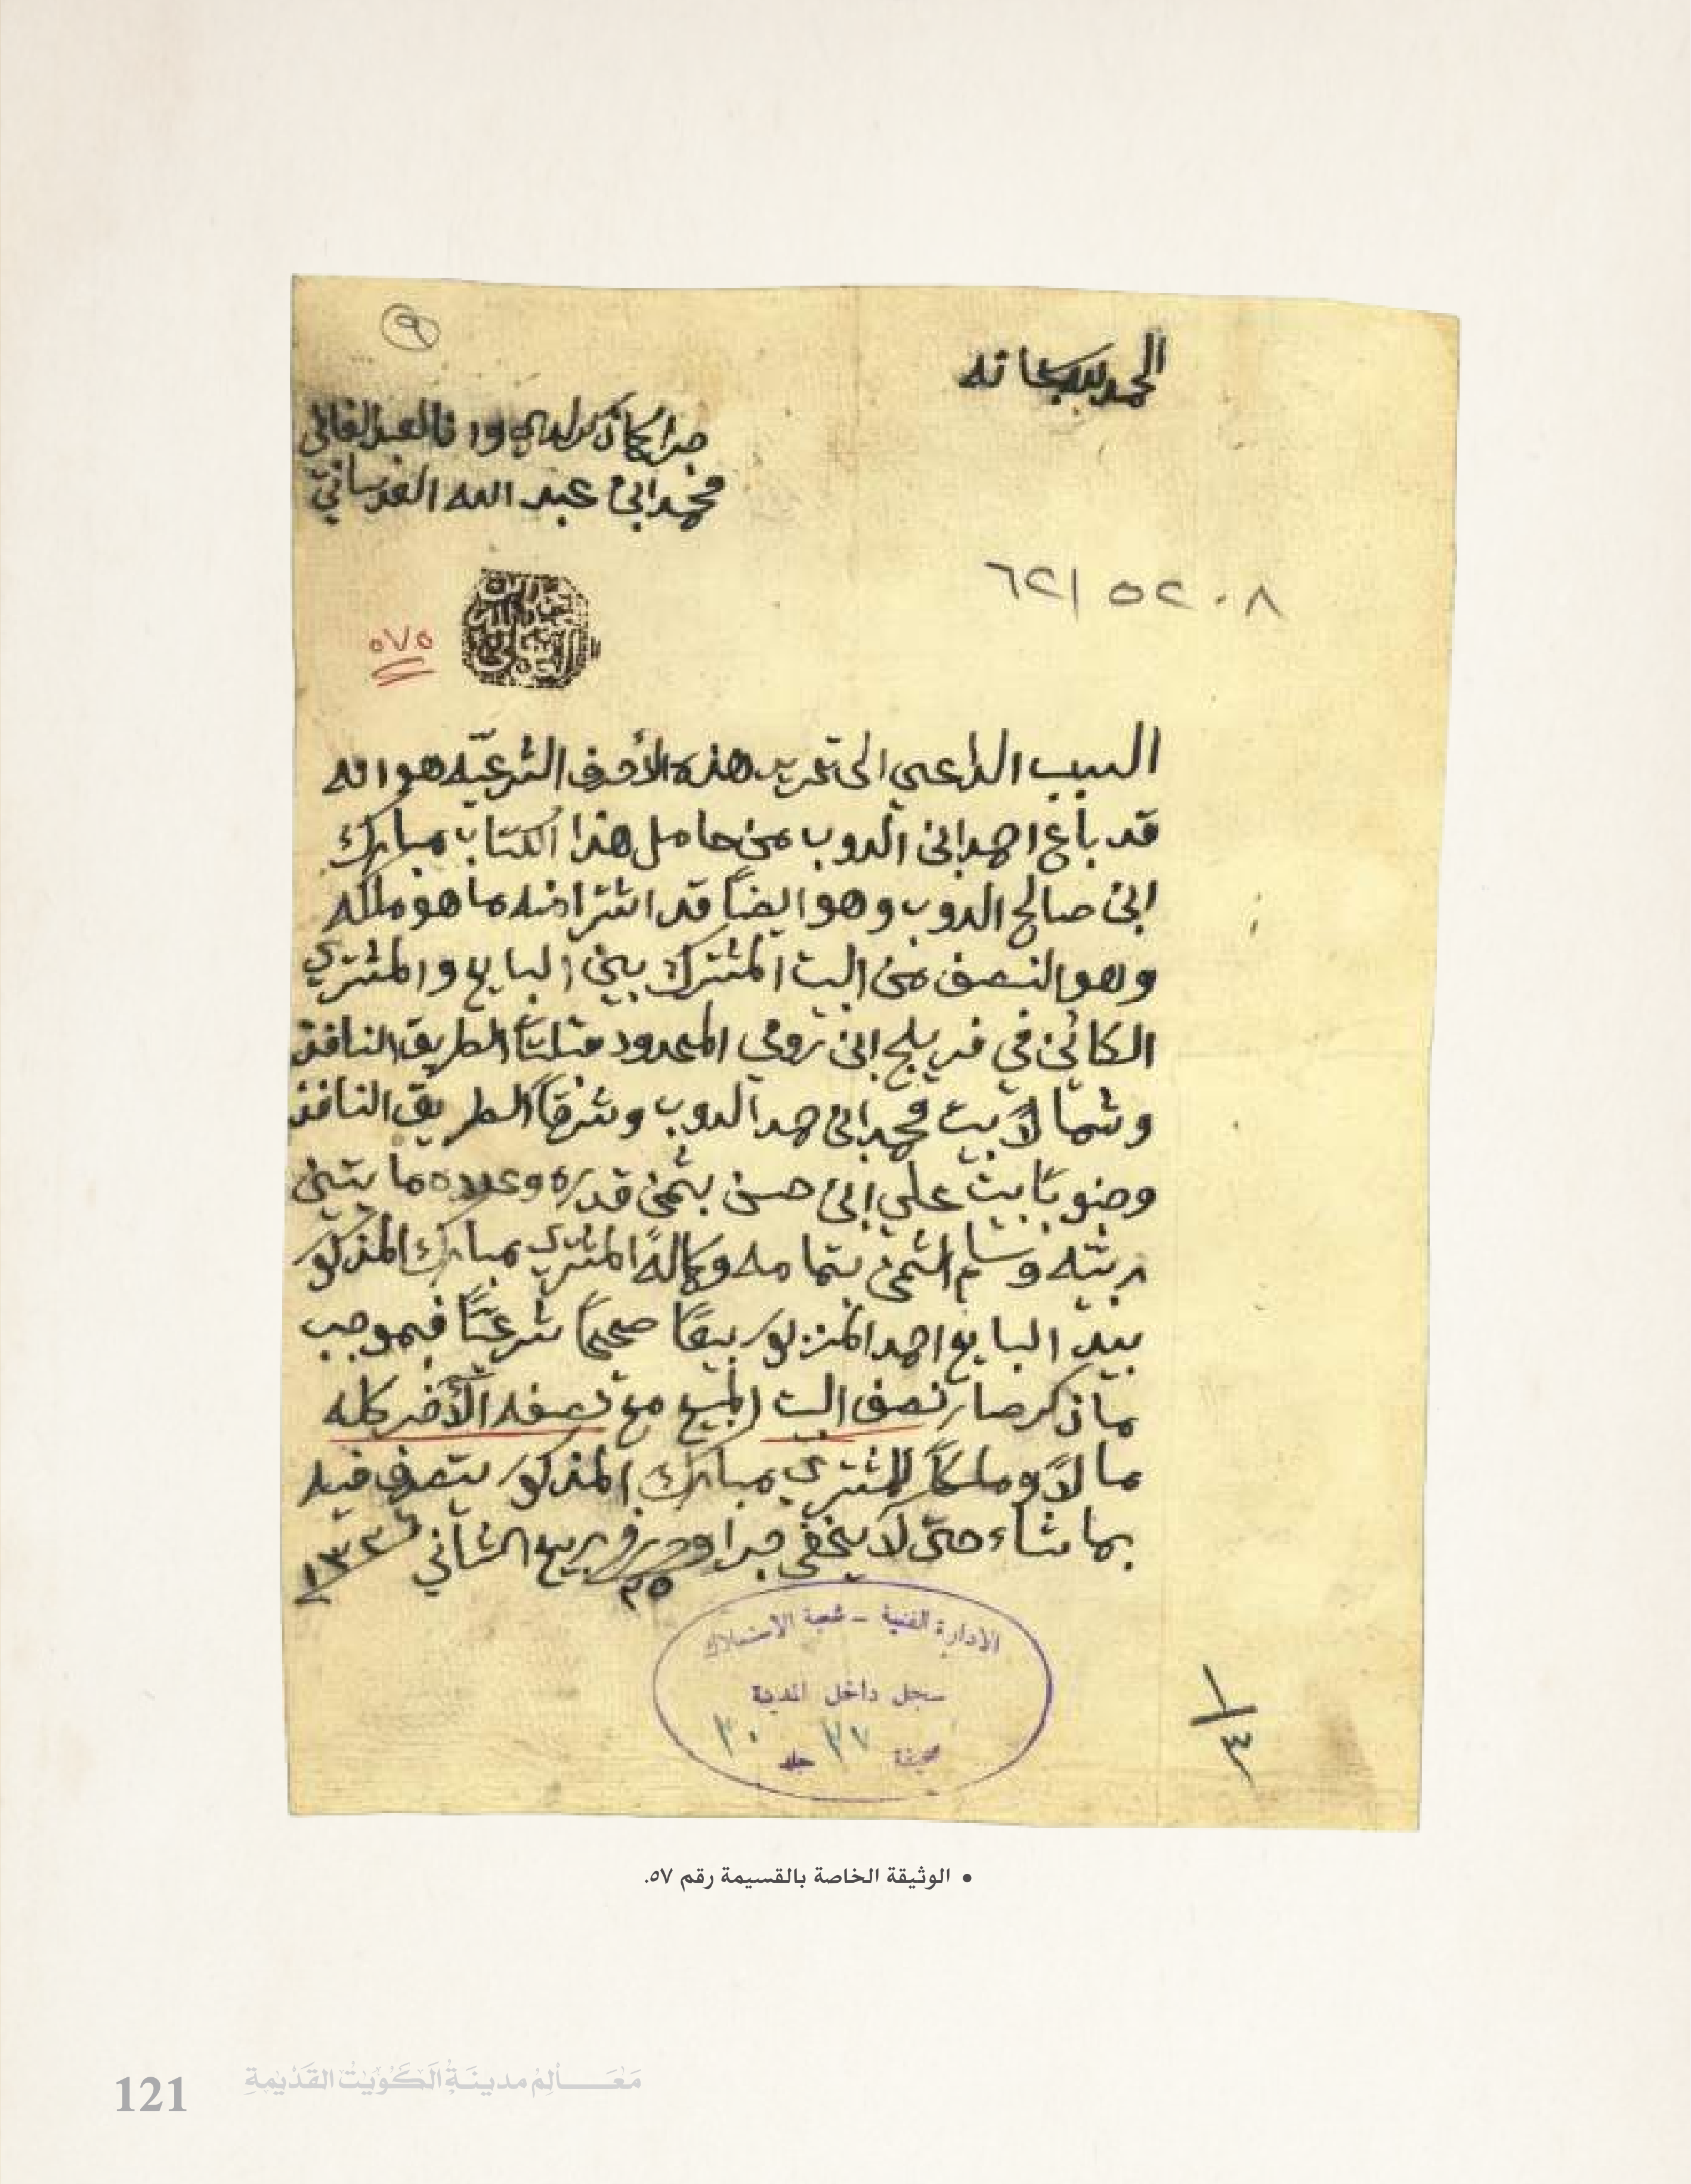 ٩
الحمد لله سبحانه
جرا كما ذكر لدي وانا العبد الفاني
محمد ابن عبد الله العدساني
٦٢/٥٢٠٨
٥٧٥
السبب الداعي الى تحرير هذه الأحرف الشرعيّه هو انه
قد باع احمد ابن الدوب من حامل هذا الكتاب مبارك
ابن صالح الدوب وهو ايضاً قد اشترا منه ما هو ملكه
وهو النصف من البيت المشترك بين البايع والمشتري
الكائن في فريج ابن رومي المحدود قبلتاً الطريق النافذ
وشمالاً بيت محمد ابن حمد الدوب وشرقاً الطريق النافذ
وجنوباً بيت علي ابن حسن بثمن قدره وعدده مايتين
ربيّه وسلم الثمن بتمامه وكماله المشتري مبارك المذكور
بيد البايع احمد المذكور بيعاً صحيحاً شرعيّاً فبموجب
ما ذكر صار نصف البيت المبيع مع نصفه الأخر كله
مالاً وملكاً للمشتري مبارك المذكور يتصرف فيه
بما شاء حتى لا يخفى جرا وحرر في ربيع الثاني
٢٥
الادارة الفنية – شعبة الاستملاك
سجل داخل المدينة
صحيفة ٣٧ جلد ٣٠
١/٤
• الوثيقة الخاصة بالقسيمة رقم ٥٧.
121 معالم مدينة الكويت القديمة